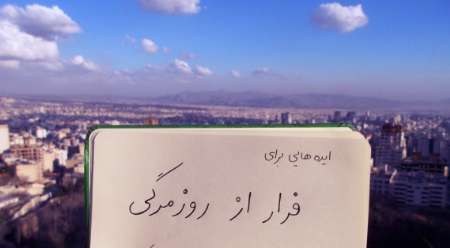 ایده هایی برای
فرار از روزمرگی